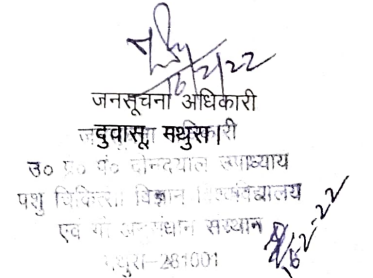 16/2/22
जनसूचना अधिकारी
दुवासू, मथुरा।
उ० प्र० पं० दीनदयाल उपाध्याय
पशु चिकित्सा विज्ञान विश्वविद्यालय
एवं गो अनुसंधान संस्थान
मथुरा-281001